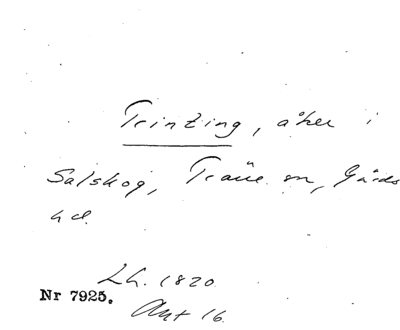 Teinting, åker i
Salskog, Träne sn, Gärds
hd.
Lh. 1820
Nr 7925.
Akt 16